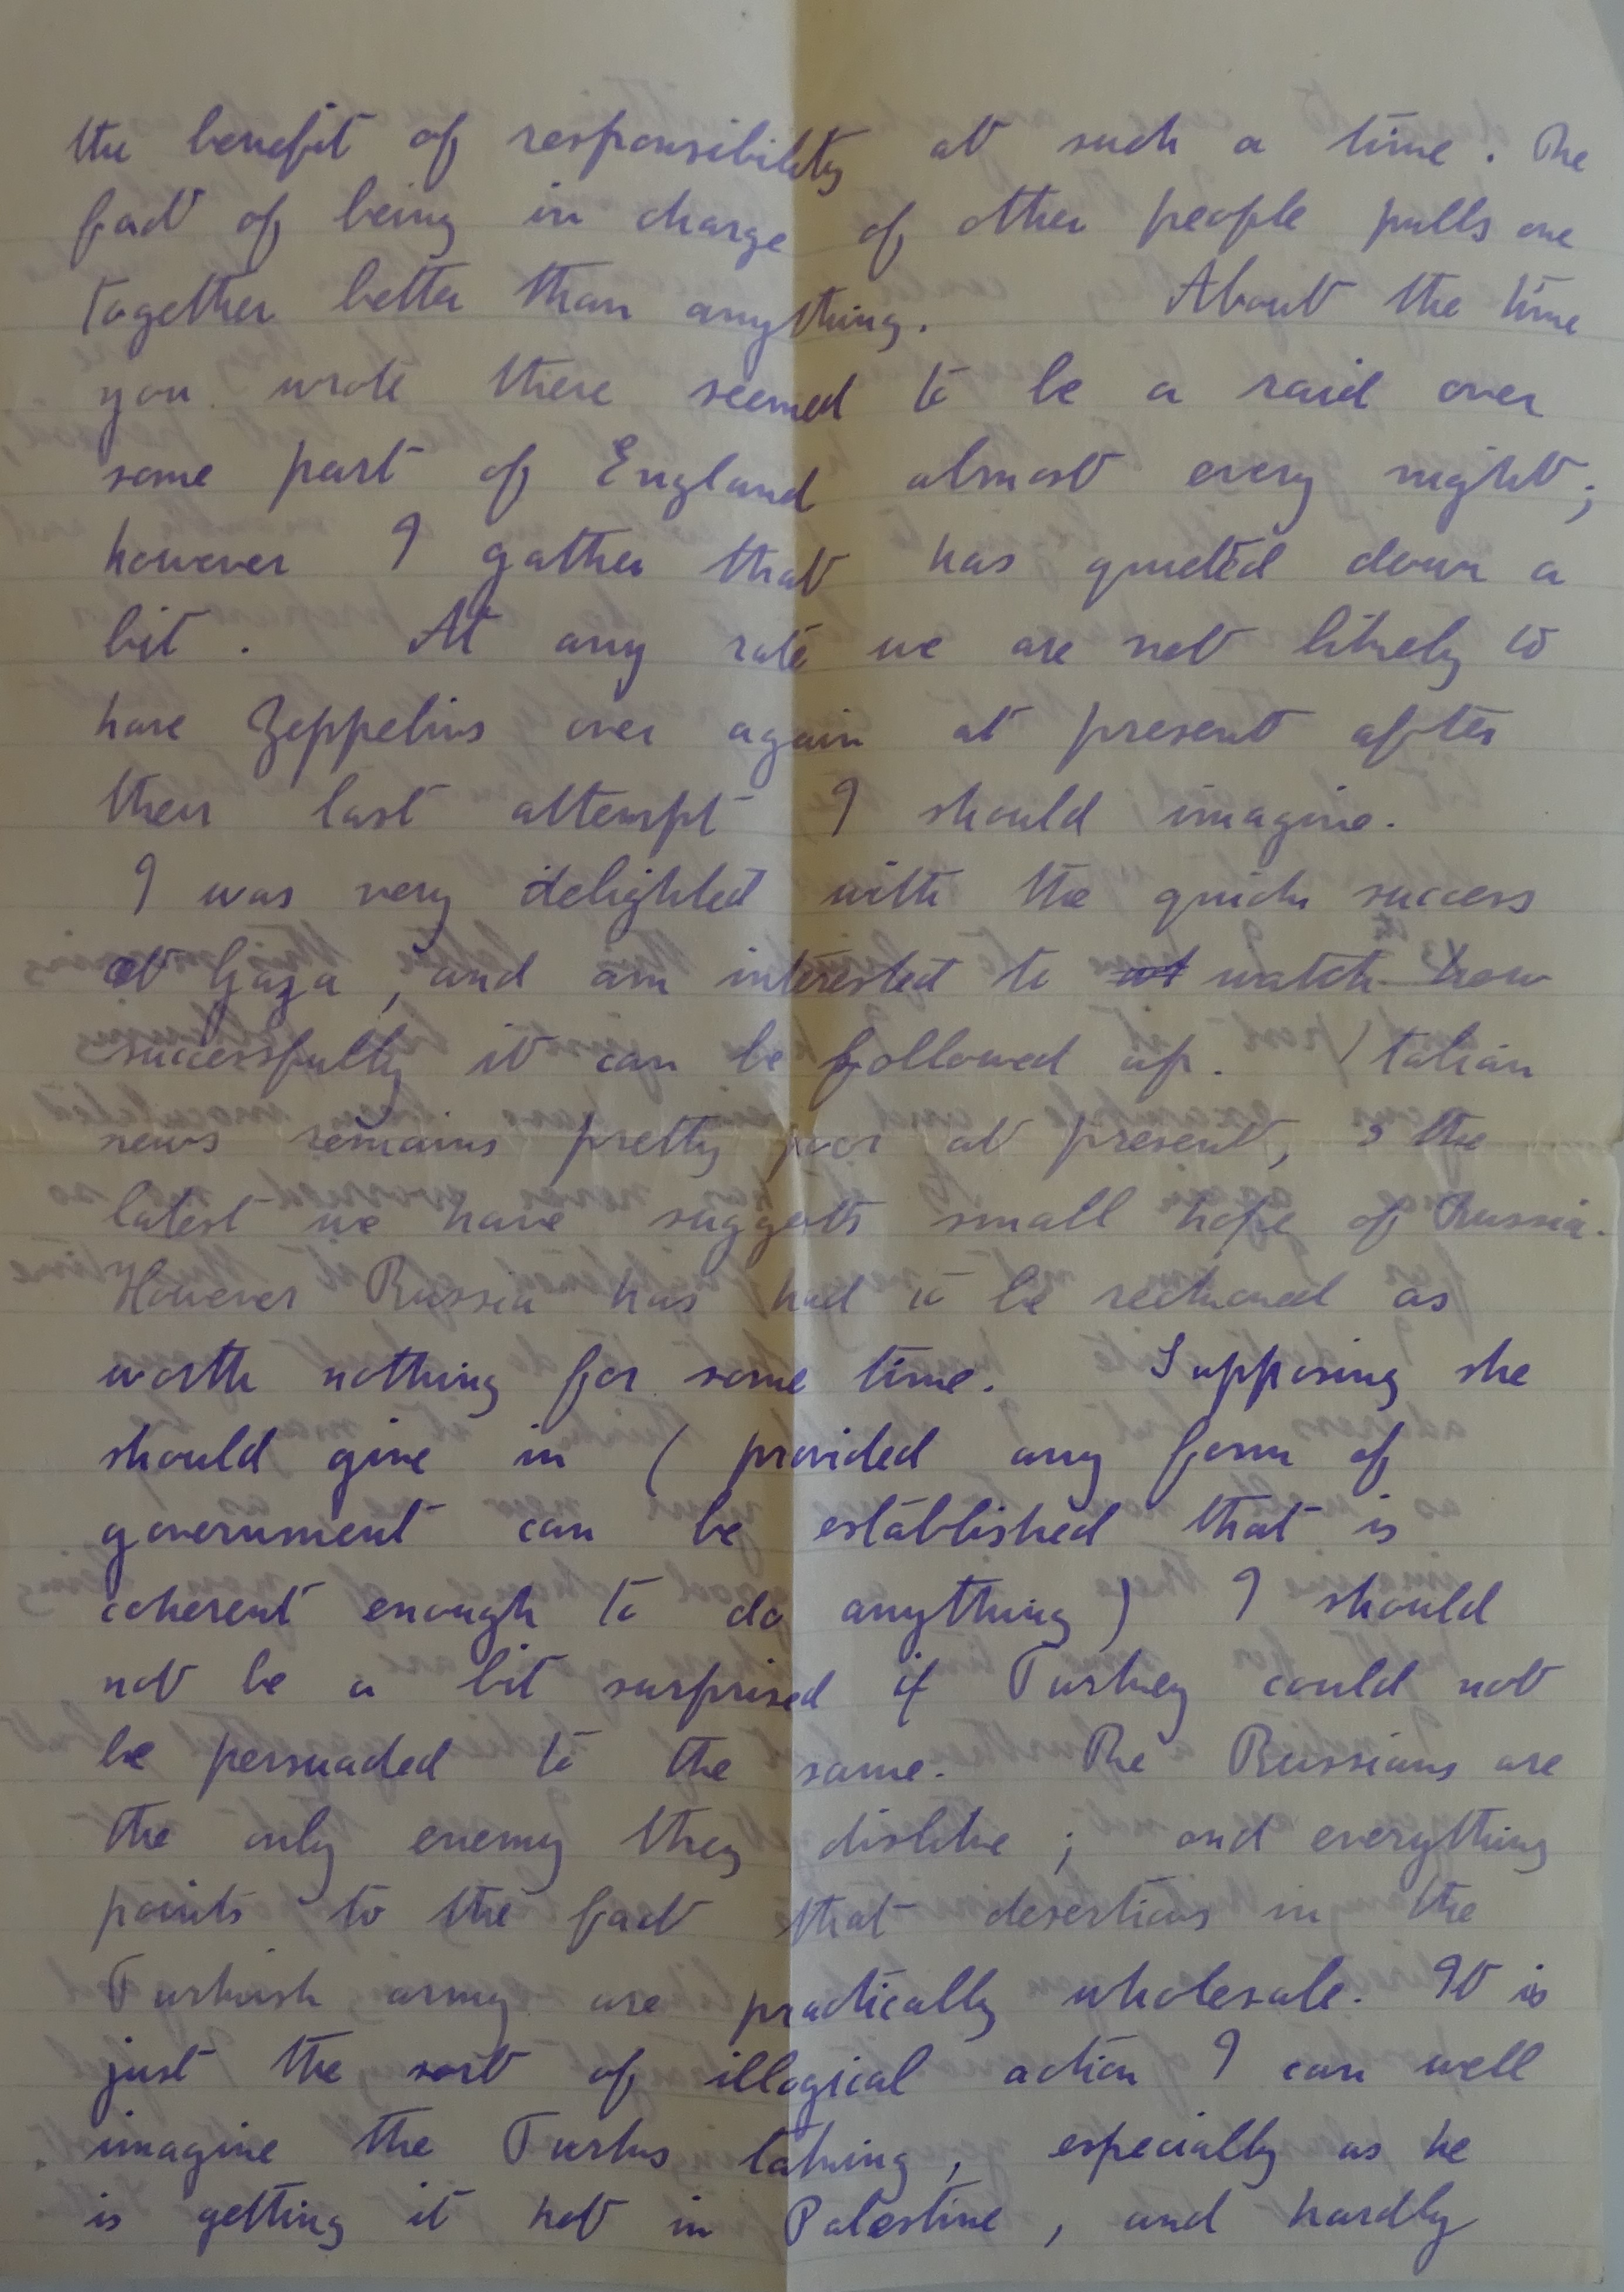 the benefit of responsibility at such a time. The
fact of being in charge of other people pulls one
together better than anything. About the time
you wrote there seemed to be a raid over
some part of England almost every night;
however I gather that has quieted down a
bit. At any rate we are not likely to
have Zeppelins over again at present after
their last attempt I should imagine.
I was very delighted with the quick success
at Gaza, and am interested to watch how
successfully it can be followed up. Italian
news remains pretty poor at present, & the
latest we have suggests small hope of Russia.
However Russia has had to be reckoned as
worth nothing for some time. Supposing she
should give in (provided any form of
government can be established that is
coherent enough to do anything) I should
not be a bit surprised if Turkey could not
be persuaded to the same. The Russians are
the only enemy they dislike; and everything
points to the fact that desertions in the
Turkish army are practically wholesale. It is
just the sort of illogical action I can well
imagine the Turks taking, especially as he
is getting it hot in Palestine, and hardly